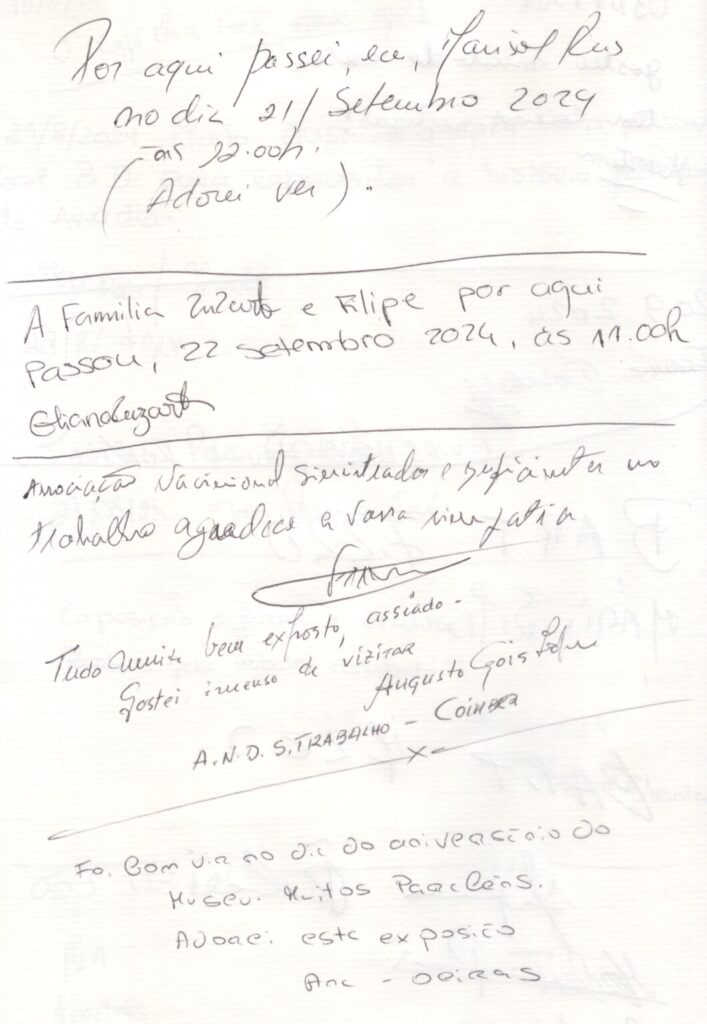 Por aqui passei, eu, Marisol Rus
no dia 21/Setembro 2024
às 12.00h.
(Adorei ver).
A Familia Luzarte e Filipe por aqui
Passou, 22 setembro 2024, às 11.00h
Associação Nacional Sinistrados e Deficientes no
trabalho agradece a vossa simpatia
Tudo muito bem exposto, asseado-
Gostei imenso de vizitar
Augusto Gois
A.N.D.S.TRABALHO - Coimbra
Foi Bom vir no dia do aniversário do
Museu. Muitos Parabéns.
Adorei esta exposição
Ana - Oeiras